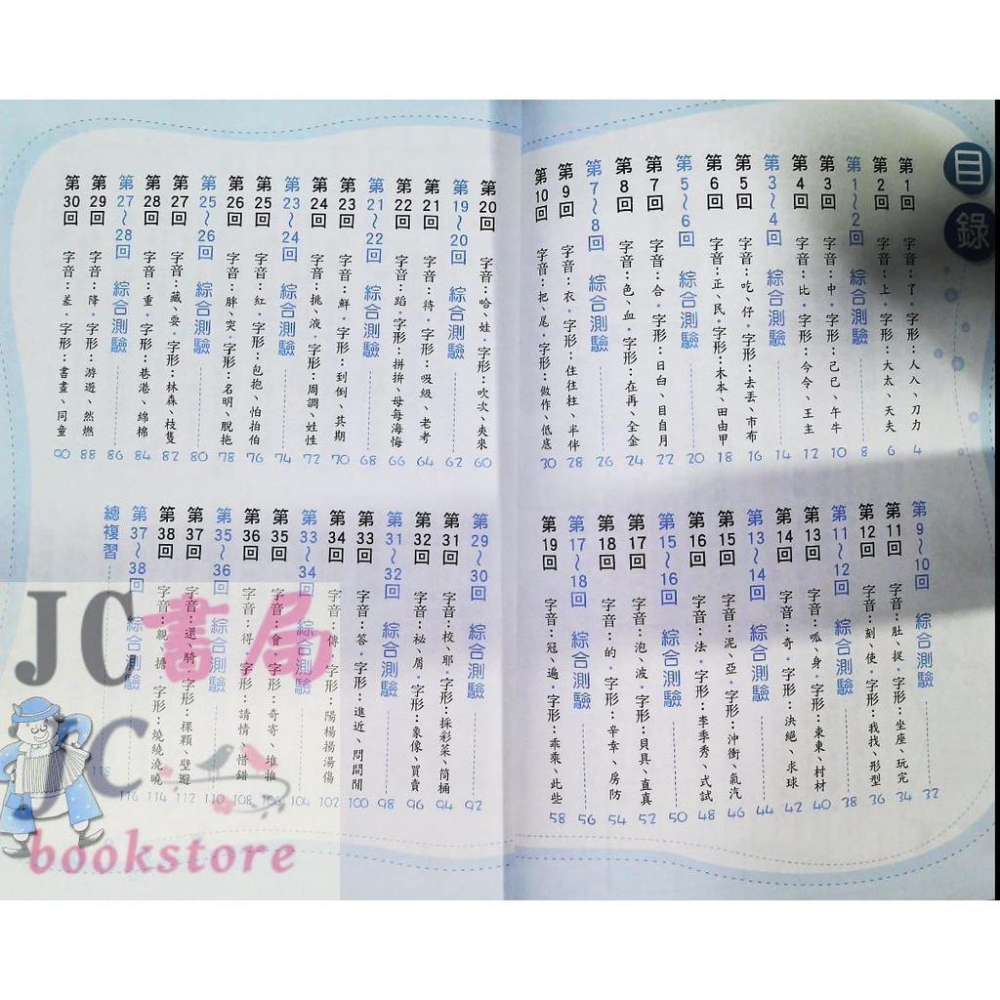 目錄
第1回 字音：了．字形：人入、刀力 4
第2回 字音：上．字形：大太、天夫 6
第1～2回 綜合測驗 8
第3回 字音：中．字形：己已、午牛 10
第4回 字音：比．字形：今令、王主 12
第3～4回 綜合測驗 14
第5回 字音：吃、仔．字形：去丟、市布 16
第6回 字音：正、民．字形：木本、田由甲 18
第5～6回 綜合測驗 20
第7回 字音：合．字形：日白、目自月 22
第8回 字音：色、血．字形：在再、全金 24
第7～8回 綜合測驗 26
第9回 字音：衣．字形：住往柱、半伴 28
第10回 字音：把、尾．字形：做作、低底 30
第9～10回 綜合測驗 32
第11回 字音：肚、捉．字形：坐座、玩完 34
第12回 字音：刻、使．字形：我找、形型 36
第11～12回 綜合測驗 38
第13回 字音：呱、身．字形：東東、村材 40
第14回 字音：奇．字形：決絕、求球 42
第13～14回 綜合測驗 44
第15回 字音：泥、亞．字形：沖衝、氣汽 46
第16回 字音：法．字形：李季秀、式試 48
第15～16回 綜合測驗 50
第17回 字音：泡、波．字形：貝具、直真 52
第18回 字音：的．字形：辛幸、房防 54
第17～18回 綜合測驗 56
第19回 字音：冠、遍．字形：乖乘、此些 58
第20回 字音：哈、娃．字形：吹次、夾來 60
第19～20回 綜合測驗 62
第21回 字音：待．字形：吸級、老考 64
第22回 字音：蹈．字形：拼拚、母每海悔 66
第21～22回 綜合測驗 68
第23回 字音：鮮．字形：到倒、其期 70
第24回 字音：挑、液．字形：周調、姓性 72
第23～24回 綜合測驗 74
第25回 字音：紅．字形：包抱、怕拍伯 76
第26回 字音：胖、突．字形：名明、脫拖 78
第25～26回 綜合測驗 80
第27回 字音：藏、耍．字形：林森、枝隻 82
第28回 字音：重．字形：巷港、綿棉 84
第27～28回 綜合測驗 86
第29回 字音：降．字形：游遊、然燃 88
第30回 字音：差．字形：書畫、同童 90
第29～30回 綜合測驗 92
第31回 字音：校、耶．字形：採彩菜、筒桶 94
第32回 字音：祕、屑．字形：象像、買賣 96
第31～32回 綜合測驗 98
第33回 字音：答．字形：進近、問間聞 100
第34回 字音：傳．字形：陽楊揚湯傷 102
第33～34回 綜合測驗 104
第35回 字音：會．字形：奇寄、堆推 106
第36回 字音：得．字形：請情、惜錯 108
第35～36回 綜合測驗 110
第37回 字音：還、騎．字形：棵顆、壁避 112
第38回 字音：親、字形：燒繞澆曉 114
第37～38回 綜合測驗 116
總複習 118
JC書局
JC
bookstore